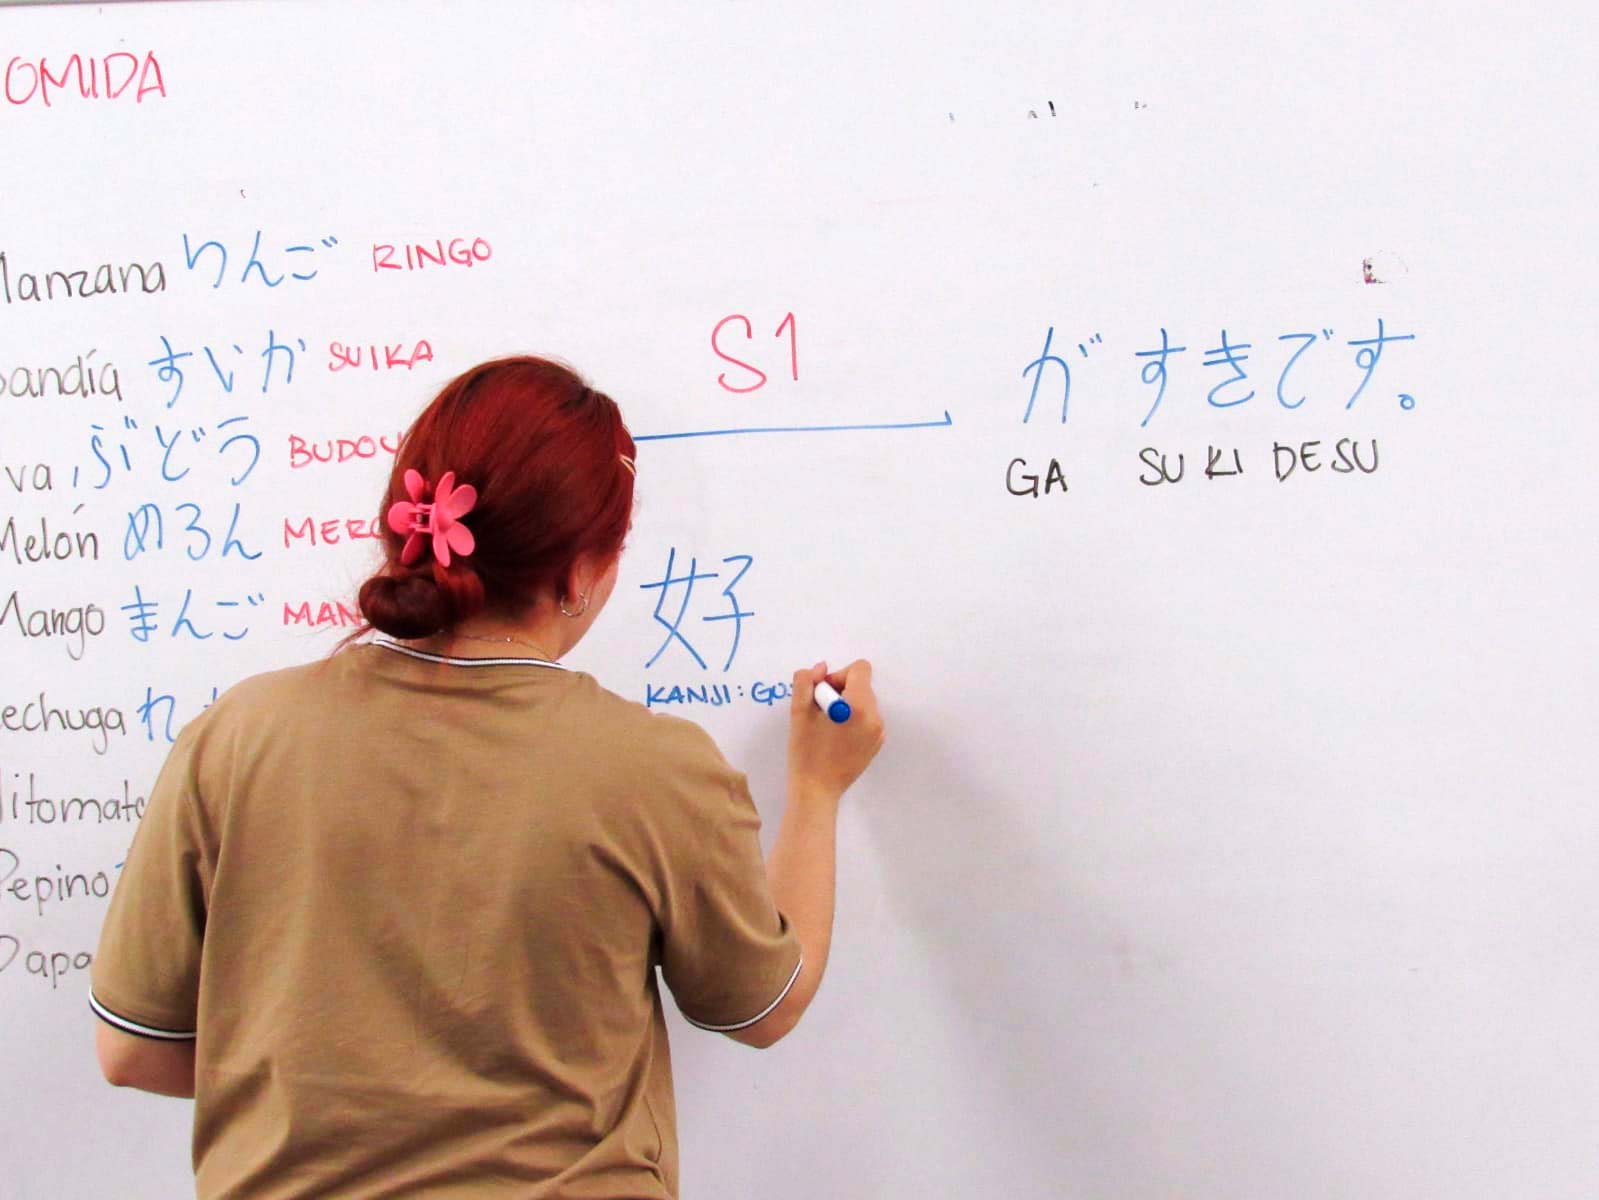 OMIDA
Manzana りんご RINGO
Sandía すいか SUIKA
va ぶどう BUDOU
Melón めろん MERO
Mango まんご MAN
echuga れ
Jitomate
Pepino
Papa
S1
がすきです。
GA SUKI DESU
好
KANJI: GUS